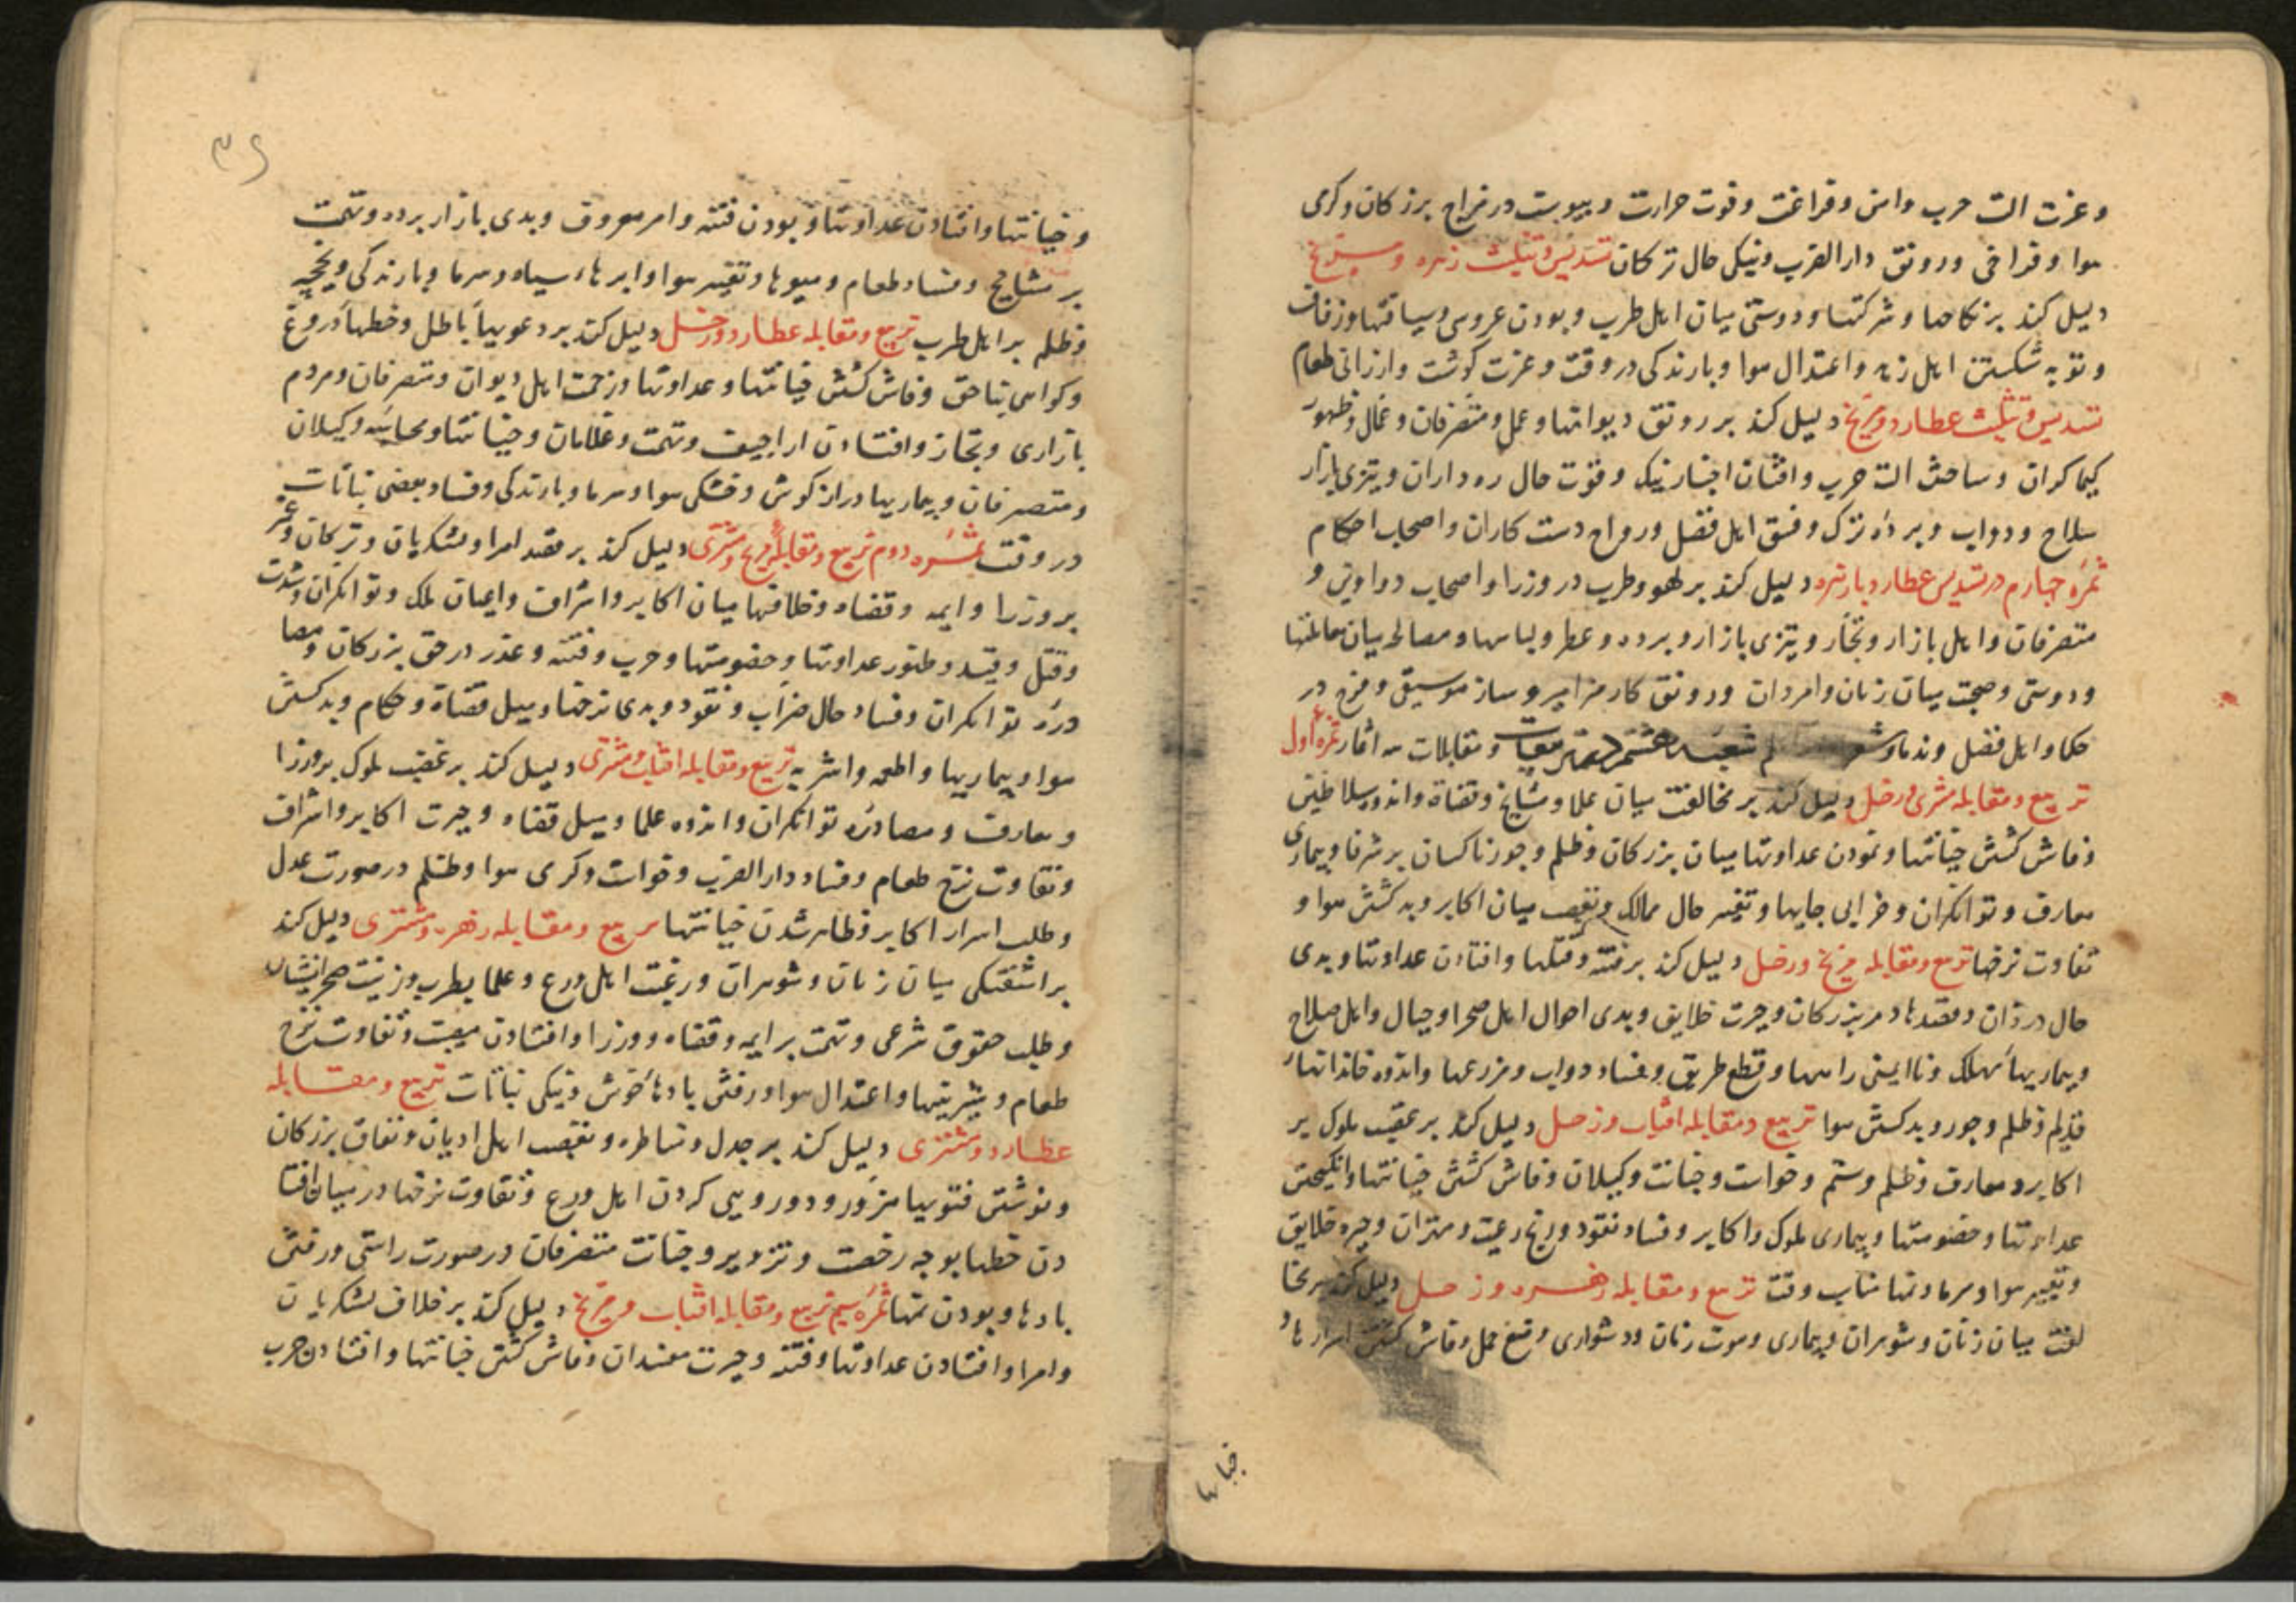 و عزت الت حرب و امن و فراغت و قوت حرارت و یبوست در مزاج بزرکان و کرمی
هوا و فراخی و رونق دار الضرب و نیکی حال ترکان تسدیس و تثلیث زهره و مریخ
دلیل کند بر نکاحها و شرکتها و دوستی میان اهل طرب و بودن عروسی و سیاقتها و زفاف
و توبه شکستن اهل زهد و اعتدال هوا و بارندکی در وقت و عزت کوشت و ارزانی طعام
تسدیس و تثلیث عطارد و مریخ دلیل کند بر رونق دیوانها و عمل و متصرفان و عمال و ظهور
کیماکران و ساختن الت حرب و افتادن اخبار نیک و قوت حال ره داران و تیزی بازار
سلاح و دواب و برده ترک و فسق اهل فضل و رواج دست کاران و اصحاب احکام
ثمره چهارم در تسدیس عطارد با زهره دلیل کند بر لهو و طرب در وزرا و اصحاب دواوین و
متصرفان و اهل بازار و تجار و تیزی بازار و برده و عطر و لباسها و مصالح میان معاملتها
و دوستی و صحبت میان زنان و امردان و رونق کار مزامیر و ساز موسیقی و فرح در
حکما و اهل فضل و ندما و شعرا شعبه هشتم در تربیعات و مقابلات سه اثمار ثمره اول
تربیع و مقابله مشتری و زحل دلیل کند بر مخالفت میان علما و مشایخ و قضاة و اندوه سلاطین
و فاش کشتن خیانتها و نمودن عداوتها میان بزرکان و ظلم و جور ناکسان بر شرفا و بیماری
معارف و توانکران و خرابی جایها و تغییر حال ممالک و تعصب میان اکابر و بد کشتن هوا و
تفاوت نرخها تربیع و مقابله مریخ و زحل دلیل کند بر فتنه و قتلها و افتادن عداوتها و بدی
حال دزدان و مفسدان در بزرکان و حیرت خلایق و بدی احوال اهل صحرا و جبال و اهل صلاح
و بیماریهاء مهلک و نا ایمنی راهها و قطع طریق و فساد دواب و مزرعها و اندوه خاندانهاء
قدیم و ظلم و جور و بد کشتن هوا تربیع و مقابله افتاب و زحل دلیل کند بر غضب ملوک بر
اکابر و معارف و ظلم و ستم و خواست و خیانت وکیلان و فاش کشتن خیانتها و انکیختن
عداوتها و خصومتها و بیماری ملوک و اکابر و فساد نقود و رنج رعیت و مهتران و حیره خلایق
و تغییر هوا و سرما و نمها مناسب وقت تربیع و مقابله زهره و زحل دلیل کند بر مخا
لفت میان زنان و شوهران و بیماری و موت زنان و دشواری وضع حمل و فاش کشتن اسرارها و
خیانتها
۳۶
و خیانتها و افتادن عداوتها و بودن فتنه و امر معروف و بدی بازار برده و تهمت
بر مشایخ و فساد طعام و میوها و تغییر هوا و ابرهاء سیاه و سرما و بارندکی
و ظلم بر اهل طرب تربیع و مقابله عطارد و زحل دلیل کند بر دعویهاء باطل و خطهاء دروغ
و کواهی بناحق و فاش کشتن خیانتها و عداوتها و زحمت اهل دیوان و متصرفان و مردم
بازاری و تجار و افتادن اراجیف و تهمت و غلامان و خیانتها و محاسبه وکیلان
و متصرفان و بیماریها در از کوش و خشکی هوا و سرما و بارندکی و فساد بعضی نباتات
در وقت ثمره دوم تربیع و مقابله مریخ و مشتری دلیل کند بر قصد امرا و لشکریان و ترکان و غیر
بر وزرا و ایمه و قضاه و خلافها میان اکابر و اشراف و اعیان ملک و توانکران و شدت
و قتل و قید و ظهور عداوتها و خصومتها و حرب و فتنه و غدر در حق بزرکان و مصا
دره توانکران و فساد حال ضراب و نقود و بدی نرخها و میل قضاة و حکام و بد کشتن
هوا و بیماریها و اطعمه و اشربه تربیع و مقابله افتاب و مشتری دلیل کند بر غضب ملوک بر وزرا
و معارف و مصادره توانکران و اندوه علما و میل قضاه و حیرت اکابر و اشراف
و تفاوت نرخ طعام و فساد دار الضرب و خواست و کرمی هوا و ظلم در صورت عدل
و طلب اسرار اکابر و ظاهر شدن خیانتها تربیع و مقابله زهره و مشتری دلیل کند
بر اشفتکی میان زنان و شوهران و رغبت اهل ورع و علما بطرب و زینت صحرانشینان
و طلب حقوق شرعی و تهمت بر ایمه و قضاه و وزرا و افتادن و تفاوت نرخ
طعام و شیرینیها و اعتدال هوا و رفتن بادهاء خوش و نیکی نباتات تربیع و مقابله
عطارد و مشتری دلیل کند بر جدل و مناظره و تعصب اهل ادیان و نفاق بزرکان
و نوشتن فتویها مزور و دورویی کردن اهل ورع و تفاوت نرخها در میان افتا
دن خطها بوجه رخصت و تزویر و خیانت متصرفان در صورت راستی و رفتن
بادها و بودن نمها ثمره سیم تربیع و مقابله افتاب و مریخ دلیل کند بر خلاف لشکریان
و امرا و افتادن عداوتها و فتنه و حیرت مفسدان و فاش کشتن خیانتها و افتادن حرب